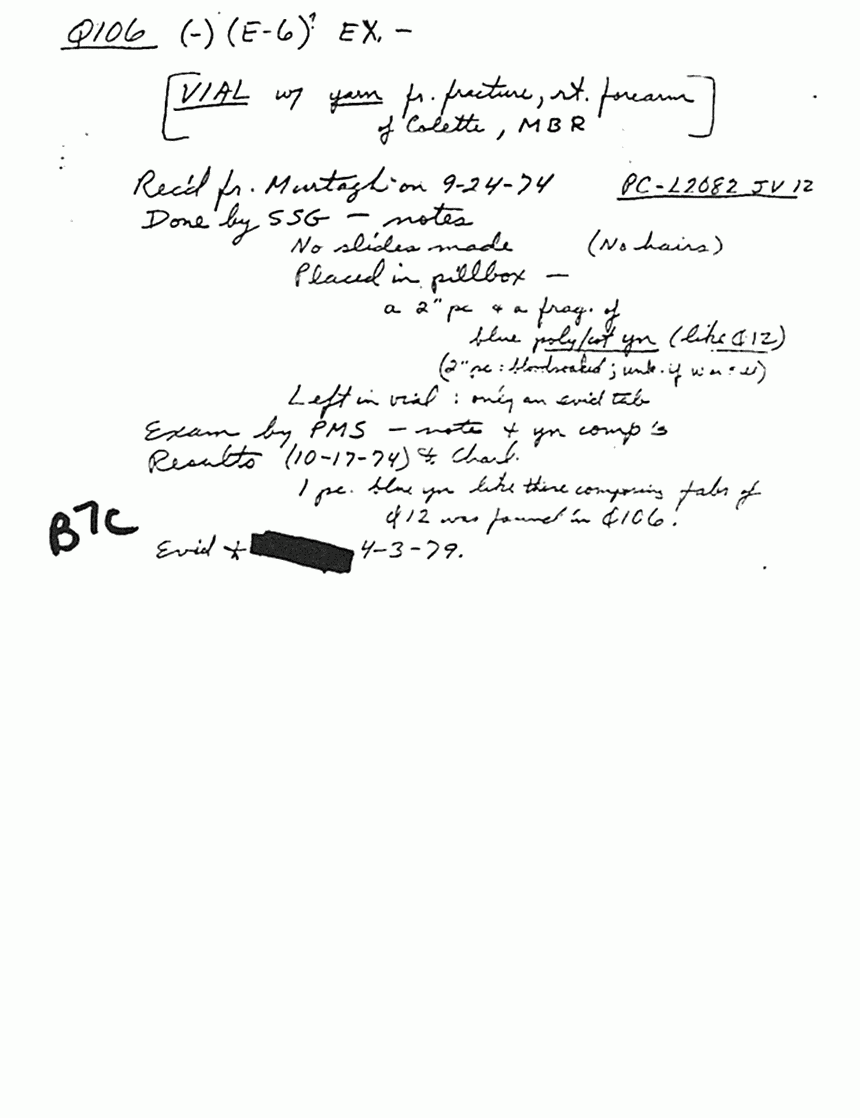 Q106 (-) (E-6)? EX. -
[VIAL w/ yarn fr. fracture, rt. forearm
of Colette, MBR]
Rec'd fr. Murtagh on 9-24-74 PC-L2082 JV 12
Done by SSG - notes
No slides made (No hairs)
Placed in pillbox -
a 2" pc + a frag. of
blue poly/cot yn (like Q12)
(2" pc : bloodsoaked; unk. if
Left in vial : only an evid tab
Exam by PMS - note + yn comp's
Results (10-17-74) & Chart.
1 pc. blue yn like those composing fabs of
Q12 was found in Q106.
B7C
Evid 4-3-79.